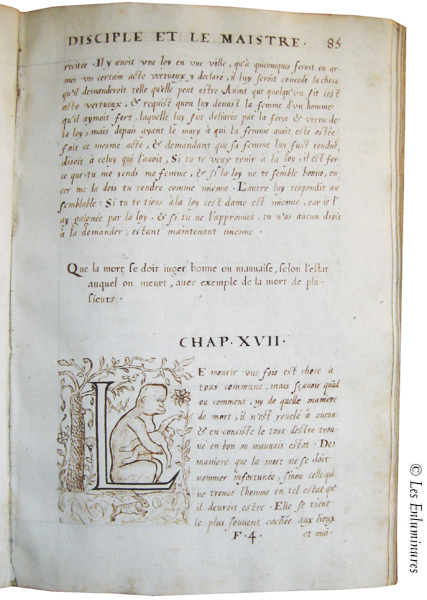 DISCIPLE ET LE MAISTRE. 85
recitée. Il y auoit vne loy en vne ville, qu'à quiconques feroit en ar-
mes vn certain acte vertueux y declaré, il luy seroit concedé la chose
qu'il demanderoit telle qu'elle peut estre. Auint que quelqu'vn fit cest
acte vertueux, & requist qu'on luy donast la femme d'vn homme
qu'il aymoit fort, laquelle luy fut deliurée par la force & vertu de
la loy, mais depuis ayant le mary à qui la femme auoit esté ostée
fait ce mesme acte, & demandant que sa femme luy fust rendue,
disoit à celuy qui l'auoit, Si tu te veux tenir à la loy, il est for-
ce que tu me rends ma femme, & si la loy ne te semble bonne, en-
cor me la dois tu rendre comme mienne. L'autre luy respondit au
semblable: Si tu te tiens à la loy cest dame est mienne, car ie l'
ay gaignée par la loy, & si tu ne l'approuues, tu n'as aucun droit
à la demander, estant maintenant mienne.
Que la mort se doit iuger bonne ou mauuaise, selon l'estat
auquel on meurt, auec exemple de la mort de plu-
sieurs.
CHAP. XVII.
LE mourir vne fois est chose à
tous commune, mais sçauoir quãd
ou comment, ny de quelle maniere
de mort, il n'est reuelé à aucun
& en consiste le tout d'estre trou-
ué en bon ou mauuais estat. De
maniere que la mort ne se doit
nommer infortunée, sinon celle qui
ne trouue l'homme en tel estat qu'
il deuroit estre. Elle se tient
le plus souuent cachée aux lieux
F. 4. et mai-
© Les Enluminures